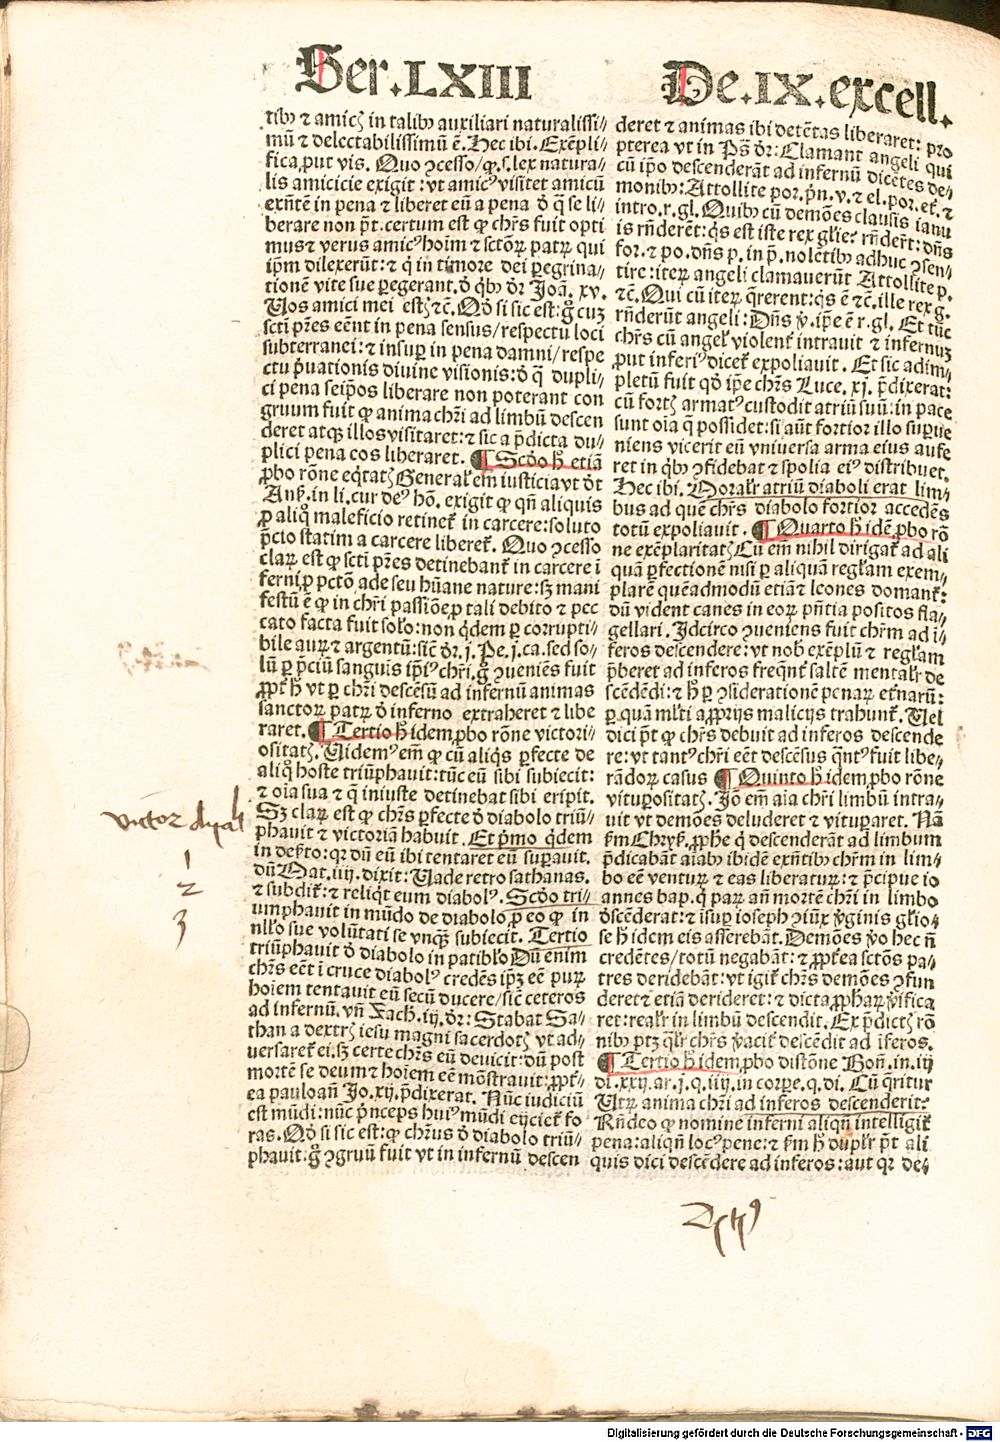 Ser.LXIII
De.IX.excell.
tibꝰ ⁊ amicꝭ in talibꝰ auxiliari naturalissi⸗
mū ⁊ delectabilissimū ē. Hec ibi. Exēpli⸗
fica, put vis. Quo ꝯcesso/ ꝙ.s.lex natura⸗
lis amicicie exigit : vt amicꝰ visitet amicū
exn̄tē in pena ⁊ liberet eū a pena ꝺ̄ q̄ se li⸗
berare non pn̄t. certum est ꝙ chr̄s fuit opti
mus ⁊ verus amicꝰ hoīm ⁊ sctōꝝ patꝝ qui
ip̄m dilexerūt: ⁊ q̄ in timore dei ꝑegrina⸗
tionē vite sue ꝑegerant. ꝺ̄ qͥbꝰ ꝺr̄ Joā. xv.
Vos amici mei estꝭ ⁊c. Qꝺ̄ si sic est: gͦ cuꝫ
scti pr̄es eēnt in pena sensus/respectu loci
subterranei: ⁊ insuꝑ in pena damni/respe
ctu p̄uationis diuine visionis: ꝺ̄ q̄ dupli⸗
ci pena seip̄os liberare non poterant con
gruum fuit ꝙ anima chr̄i ad limbū descen
deret atqꝫ illos visitaret: ⁊ sic a p̄dicta du⸗
plici pena eos liberaret. ¶ Scꝺo h̄ etiā
ꝓbo rōne eqͥtatꝭ General̓ em̄ iusticia vt ꝺt
Anſ. in li. cur deꝰ hō. exigit ꝙ qn̄ aliquis
ꝓ aliqͦ maleficio retinet̉ in carcere: soluto
p̄cio statim a carcere liberet̉. Quo ꝯcesso
claꝝ est ꝙ scti pr̄es detinebant̉ in carcere ī
ferni ꝓ pctō ade seu hūane nature: sꝫ mani
festū ē ꝙ in chr̄i passiōe ꝓ tali debito ⁊ pec
cato facta fuit sol̓o: non qͥdem ꝑ corrupti⸗
bile auꝝ ⁊ argentū: sicē ꝺr̄. j. Pe. j. ca. sed so⸗
lū ꝑ p̄ciū sanguīs ip̄iꝰ chr̄i. gͦ ꝯueniēs fuit
ꝓpt̉ h̄ vt ꝑ chr̄i descēsū ad infernū animas
sanctoꝝ patꝝ ꝺ̄ inferno extraheret ⁊ libe
raret. ¶ Tertio h̄ idem ꝓbo rōne victori⸗
ositatꝭ. Uidemꝰ em̄ ꝙ cū aliqͥs ꝑfecte de
aliqͦ hoste triūphauit: tūc eū sibi subiecit:
⁊ oīa sua ⁊ q̄ iniuste detinebat sibi eripit.
Sꝫ claꝝ est ꝙ chr̄s ꝑfecte ꝺ̄ diabolo triū⸗
phauit ⁊ victoriā habuit. Et p̄mo qͥdem
in deẜto: qꝛ dū eū ibi tentaret eū suꝑauit.
dū Mat. iiij. dixit: Uade retro sathanas.
⁊ subdit̉: ⁊ reliqͥt eum diabolꝰ. Scꝺo tri⸗
umphauit in mūdo de diabolo ꝓ eo ꝙ in
nllo sue volūtati se vnqꝫ subiecit. Tertio
triūphauit ꝺ̄ diabolo in patibl̓o. Dū enim
chr̄s eēt ī cruce diabolꝰ credēs ip̄ꝫ eē puꝝ
hoīem tentauit eū secū ducere/ sicē ceteros
ad infernū. vn̄ Zach. iij. ꝺr̄: Stabat Sa⸗
than a dextrꝭ iesu magni sacerdotꝭ vt ad⸗
uersaret̉ ei. sꝫ certe chr̄s eū deuicit: dū post
mortē se deum ⁊ hoīem eē mōstrauit: ꝓpt̉⸗
ea pauloan̄ Jo. xij. p̄dixerat. Nūc iudiciū
est mūdi: nūc p̄nceps huiꝰ mūdi eijciet̉ fo
ras. Qꝺ̄ si sic est: ꝙ chr̄us ꝺ̄ diabolo triū⸗
phauit: gͦ ꝯgruū fuit vt in infernū descen
deret ⁊ animas ibi detētas liberaret: pro
pterea vt in Ps̄ ꝺr̄: Clamant angeli qui
cū ip̄o descenderāt ad infernū dicētes de⸗
monibꝰ: Attollite por. p̄n. v. ⁊ el. por. et̉. ⁊
intro. r. gl. Quibꝰ cū demōes clausis ianu
is rn̄derēt: qͥs est iste rex gl̓ie? rn̄dert̄: dn̄s
for. ⁊ po. dn̄s p. in p̄. nolētibꝰ adhuc ꝯsen⸗
tire: iteꝝ angeli clamauerūt Attollite p.
⁊c. Qui cū iteꝝ q̄rerent: qͥs ē ⁊c. ille rex g.
rn̄derūt angeli: Dn̄s v̄. ip̄e ē r. gl. Et tūc
chr̄s cū angel̓ violent̉ intrauit ⁊ infernuꝫ
ꝓut inferiꝰ dicet̉ expoliauit. Et sic adim⸗
pletū fuit qꝺ̄ ip̄e chr̄s Luce. xj. p̄dixerat:
cū fortꝭ armatꝰ custodit atriū suū: in pace
sunt oīa q̄ possidet: si aūt fortior illo suꝑue
niens vicerit eū vniuersa arma eius aufe
ret in qͥbꝰ ꝯfidebat ⁊ spolia eiꝰ distribuet.
Hec ibi. Moral̓r atriū diaboli erat lim⸗
bus ad quē chr̄s diabolo fortior accedēs
totū expoliauit. ¶ Quarto h̄ idē ꝓbo rō
ne exēplaritatꝭ Cū em̄ nihil dirigat̉ ad ali
quā ꝑfectionē nisi ꝑ aliquā regl̓am exem⸗
plarē quēadmodū etiā ⁊ leones domant̉:
dū vident canes in eoꝝ pn̄tia positos fla⸗
gellari. Jdcirco ꝯueniens fuit chr̄m ad ī⸗
feros descendere: vt nob̓ exēplū ⁊ regl̓am
p̄beret ad inferos freqn̄t̉ saltē mental̓r de
scēdēdi: ⁊ h̄ ꝑ ꝯsiderationē penaꝝ et̉narū:
ꝑ quā ml̓ti a ꝓprijs malicijs trahunt̉. Uel
dici pōt ꝙ chr̄s debuit ad inferos descende
re: vt tantꝰ chr̄i eēt descēsus qn̄tꝰ fuit libe⸗
rādoꝝ casus ¶ Quinto h̄ idem ꝓbo rōne
vituꝑositatꝭ. Jō em̄ aīa chr̄i limbū intra⸗
uit vt demōes deluderet ⁊ vituꝑaret. Nā
ẜm Chryſ. ꝓphe q̄ descenderāt ad limbum
p̄dicabāt aīabꝰ ibidē exn̄tibꝰ chr̄m in lim⸗
bo eē ventuꝝ ⁊ eas liberatuꝝ: ⁊ p̄cipue io
annes bap. qͥ paꝝ an̄ mortē chr̄i in limbo
ꝺscēderat: ⁊ īsuꝑ ioseph ꝯiūx v̄ginis gl̓io⸗
se h̄ idem eis asserebāt. Demōes v̄o hec n̄
credētes/ totū negabāt: ⁊ ꝓpt̉ea sctōs pa⸗
tres deridebāt: vt igit̉ chr̄s demōes ꝯfun
deret ⁊ etiā derideret: ⁊ dicta ꝓphaꝝ v̄ifica
ret: real̓r in limbū descendit. Ex p̄dictꝭ rō
nibꝰ ptꝫ qlr̄ chr̄s v̄acit̉ descēdit ad īferos.
¶ Tertio h̄ idem ꝓbo distōne Bon̄. in. iij
di. xxij. ar. j. q. iiij. in corꝑe. q. di. Cū q̄ritur
Utꝝ anima chr̄i ad inferos descenderit?
Rn̄deo ꝙ nomine inferni aliqn̄ intelligit̉
pena: aliqn̄ locꝰ pene: ⁊ ẜm h̄ dupl̓r pōt ali
quis dici descēdere ad inferos: aut qꝛ de⸗
1
2
3
Digitalisierung gefördert durch die Deutsche Forschungsgemeinschaft - DFG